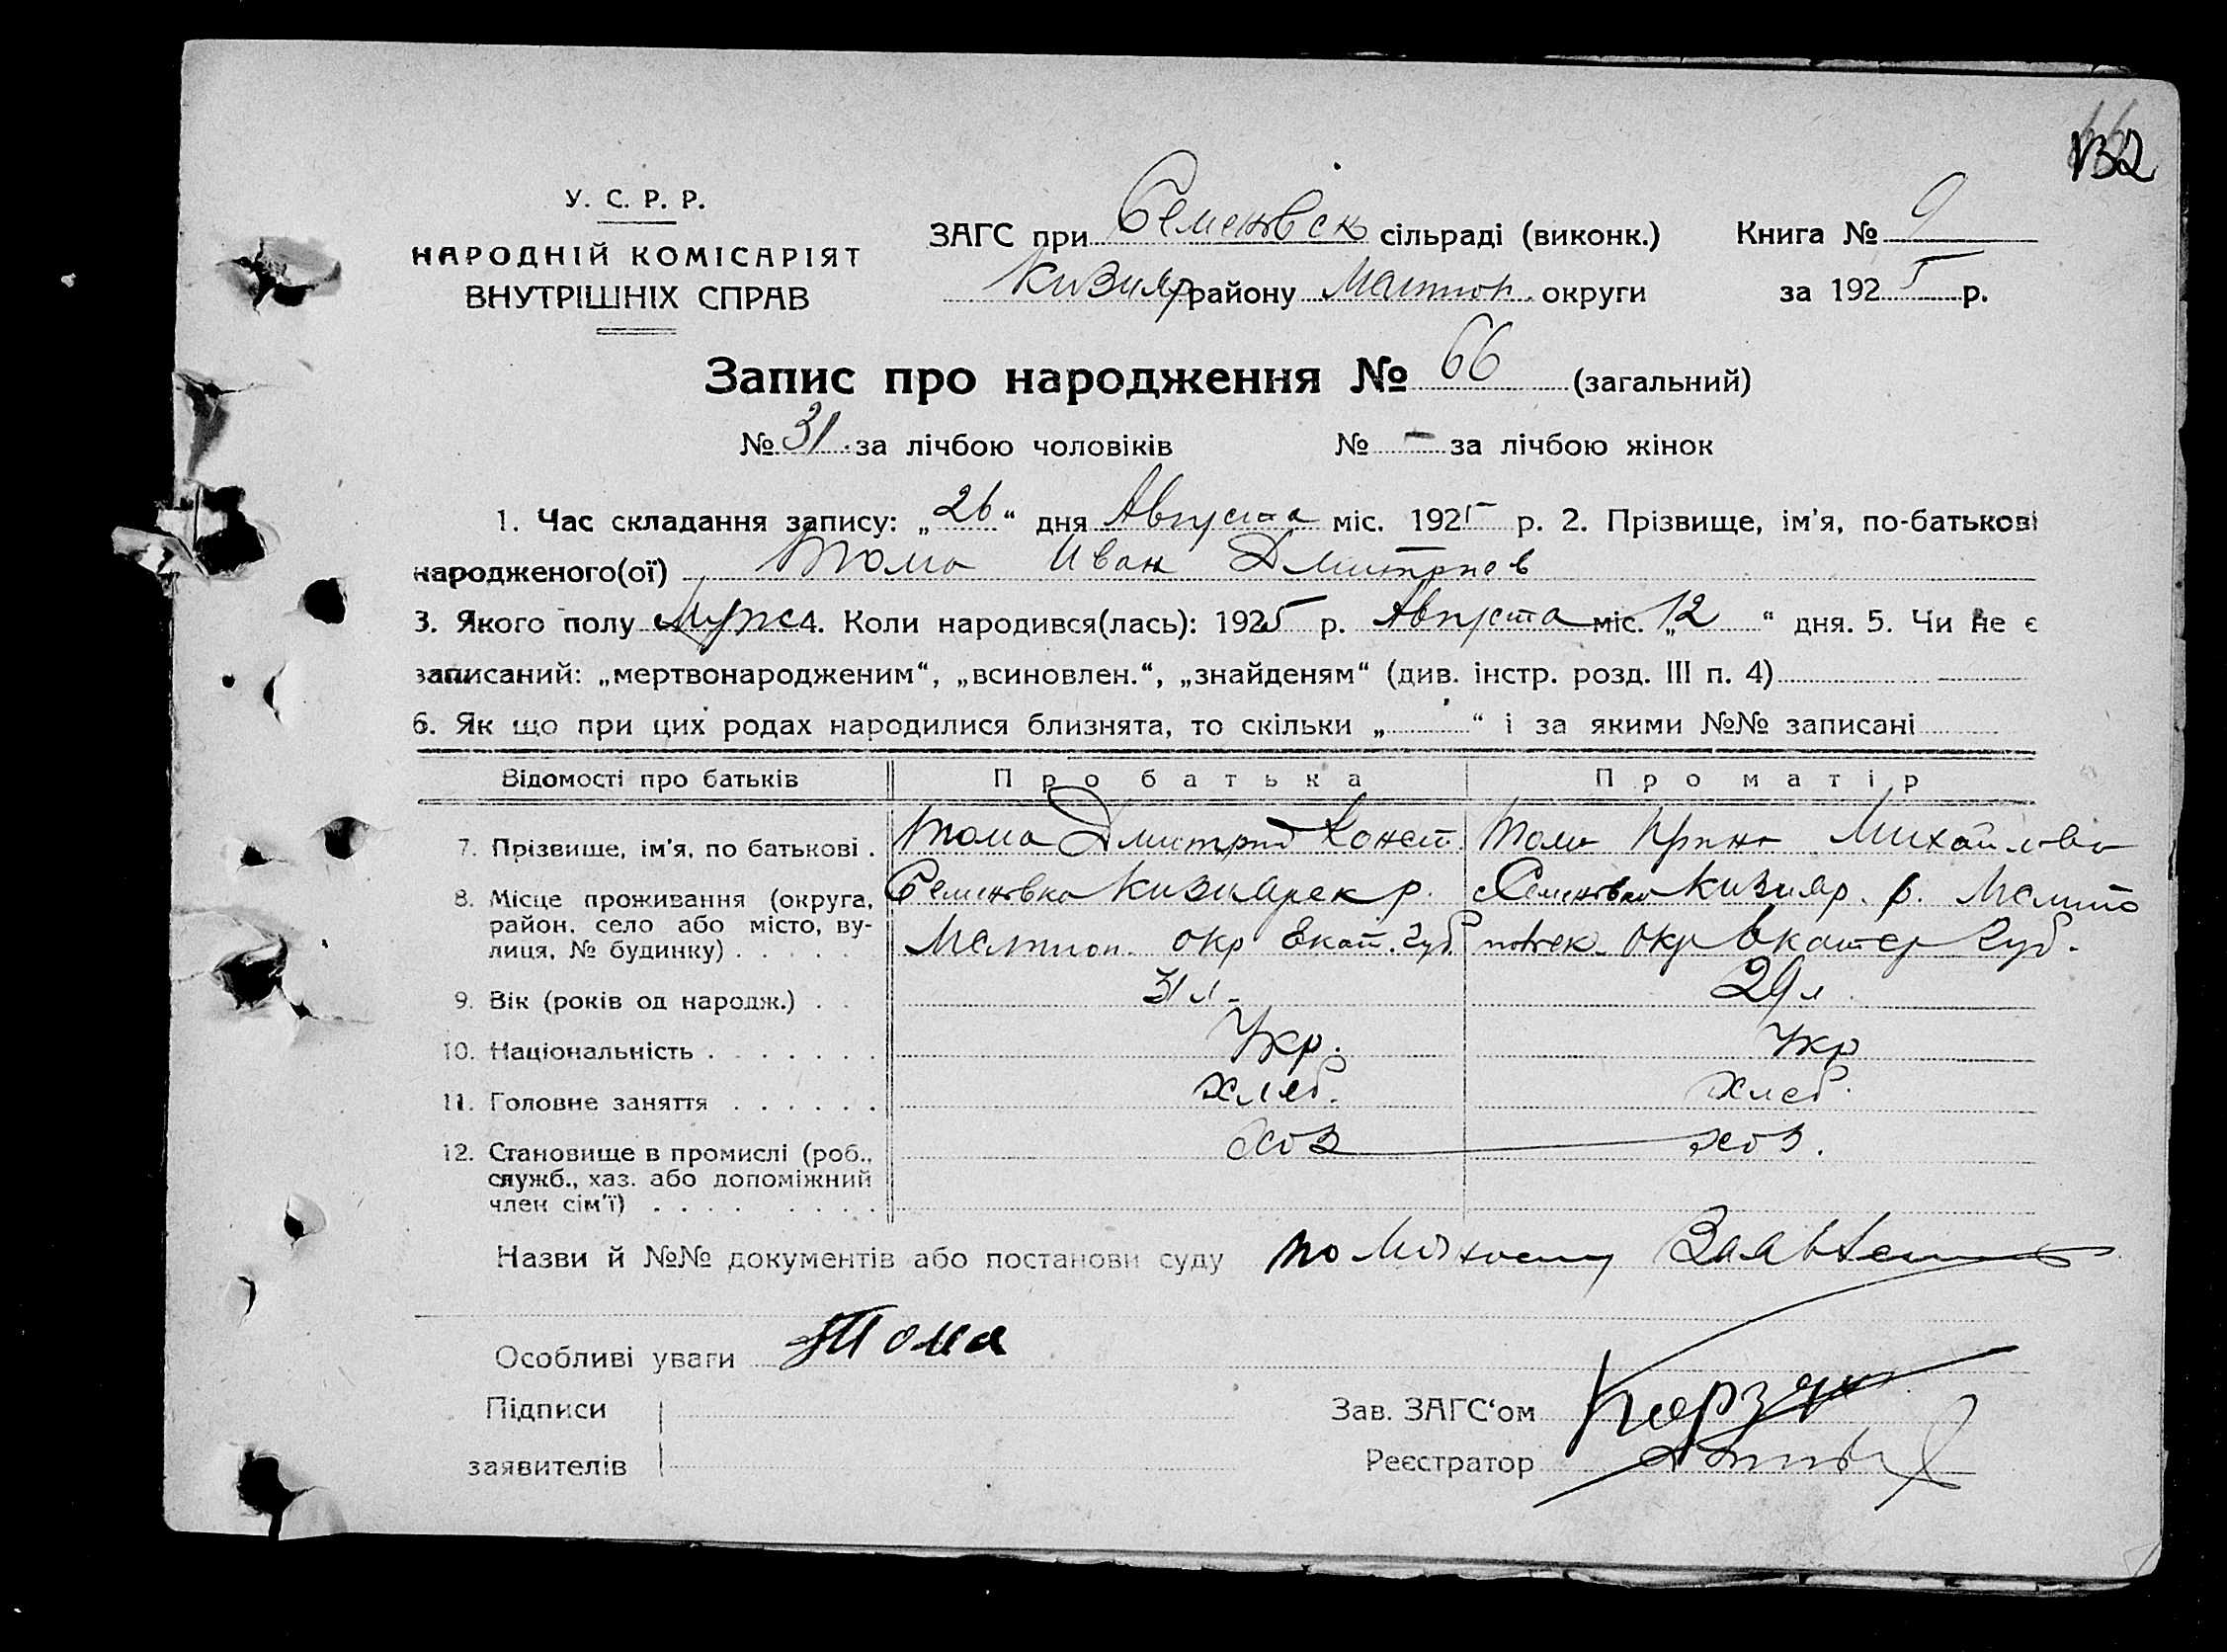 132
У. С. Р. Р.
НАРОДНІЙ КОМІСАРІЯТ
ВНУТРІШНІХ СПРАВ
ЗАГС при Семеновск сільраді (виконк.) Книга № 9
Кизияр району Мелитоп. округи за 1925 р.
Запис про народження № 66 (загальний)
№ 31 за лічбою чоловіків № - за лічбою жінок
1. Час складання запису: „26“ дня Августа міс. 1925 р. 2. Прізвище, ім'я, по-батькові
народженого(ої) Тома Иван Дмитриев
3. Якого полу Мужс 4. Коли народився(лась): 1925 р. Августа міс. „12“ дня. 5. Чи не є
записаний: „мертвонародженим“, „всиновлен.“, „знайденям“ (див. інстр. розд. III п. 4)
6. Як що при цих родах народилися близнята, то скільки „ “ і за якими №№ записані
Відомості про батьків Про батька Про матір
7. Прізвище, ім'я, по батькові . Тома Дмитрий Конст. Тома Ирина Михайлова
8. Місце проживання (округа, район, село або місто, вулиця, № будинку) . . . . . Семеновка Кизиярск р. Семеновка Кизияр. р. Мелито
Мелитоп. окр Екат. губ. польск. окр Екатер губ.
9. Вік (років од народж.) . . 31 л - 29 л
10. Національність . . . . . . . Укр. Укр
11. Головне заняття . . . . . . хлеб. хлеб.
12. Становище в промислі (роб., служб., хаз. або допоміжний член сім'ї) . . . . . . . . хоз хоз.
Назви й №№ документів або постанови суду по личному Заявлению
Особливі уваги Тома
Підписи
заявителів
Зав. ЗАГС‘ом
Реєстратор